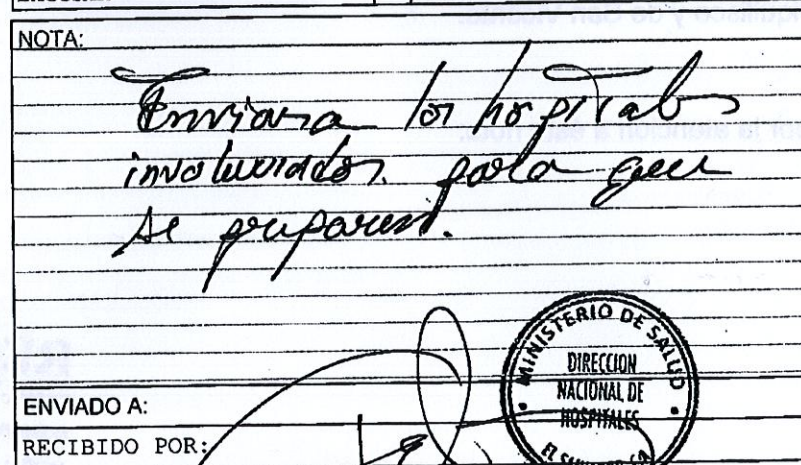 NOTA:
Enviar a los hospitales
involucrados. para que
se preparen.
MINISTERIO DE SALUD
DIRECCION
NACIONAL DE
HOSPITALES
EL SALVADOR
ENVIADO A:
RECIBIDO POR: